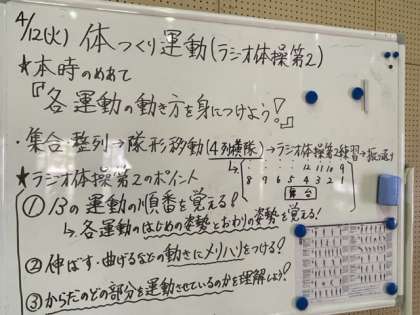 4/12(火) 体つくり運動(ラジオ体操第2)
★本時のめあて
『各運動の動き方を身につけよう!』
・集合・整列→隊形移動(4列横隊)→ラジオ体操第2練習→振り返り
: : : : 12 11 10 9
8 9 6 5 4 3 2 1
舞台
★ラジオ体操第2のポイント
①13の運動の順番を覚える!
↳各運動のはじめの姿勢とおわりの姿勢を覚える!
②伸ばす・曲げるなどの動きにメリハリをつける!
③からだのどの部分を運動させているのかを理解しよう!